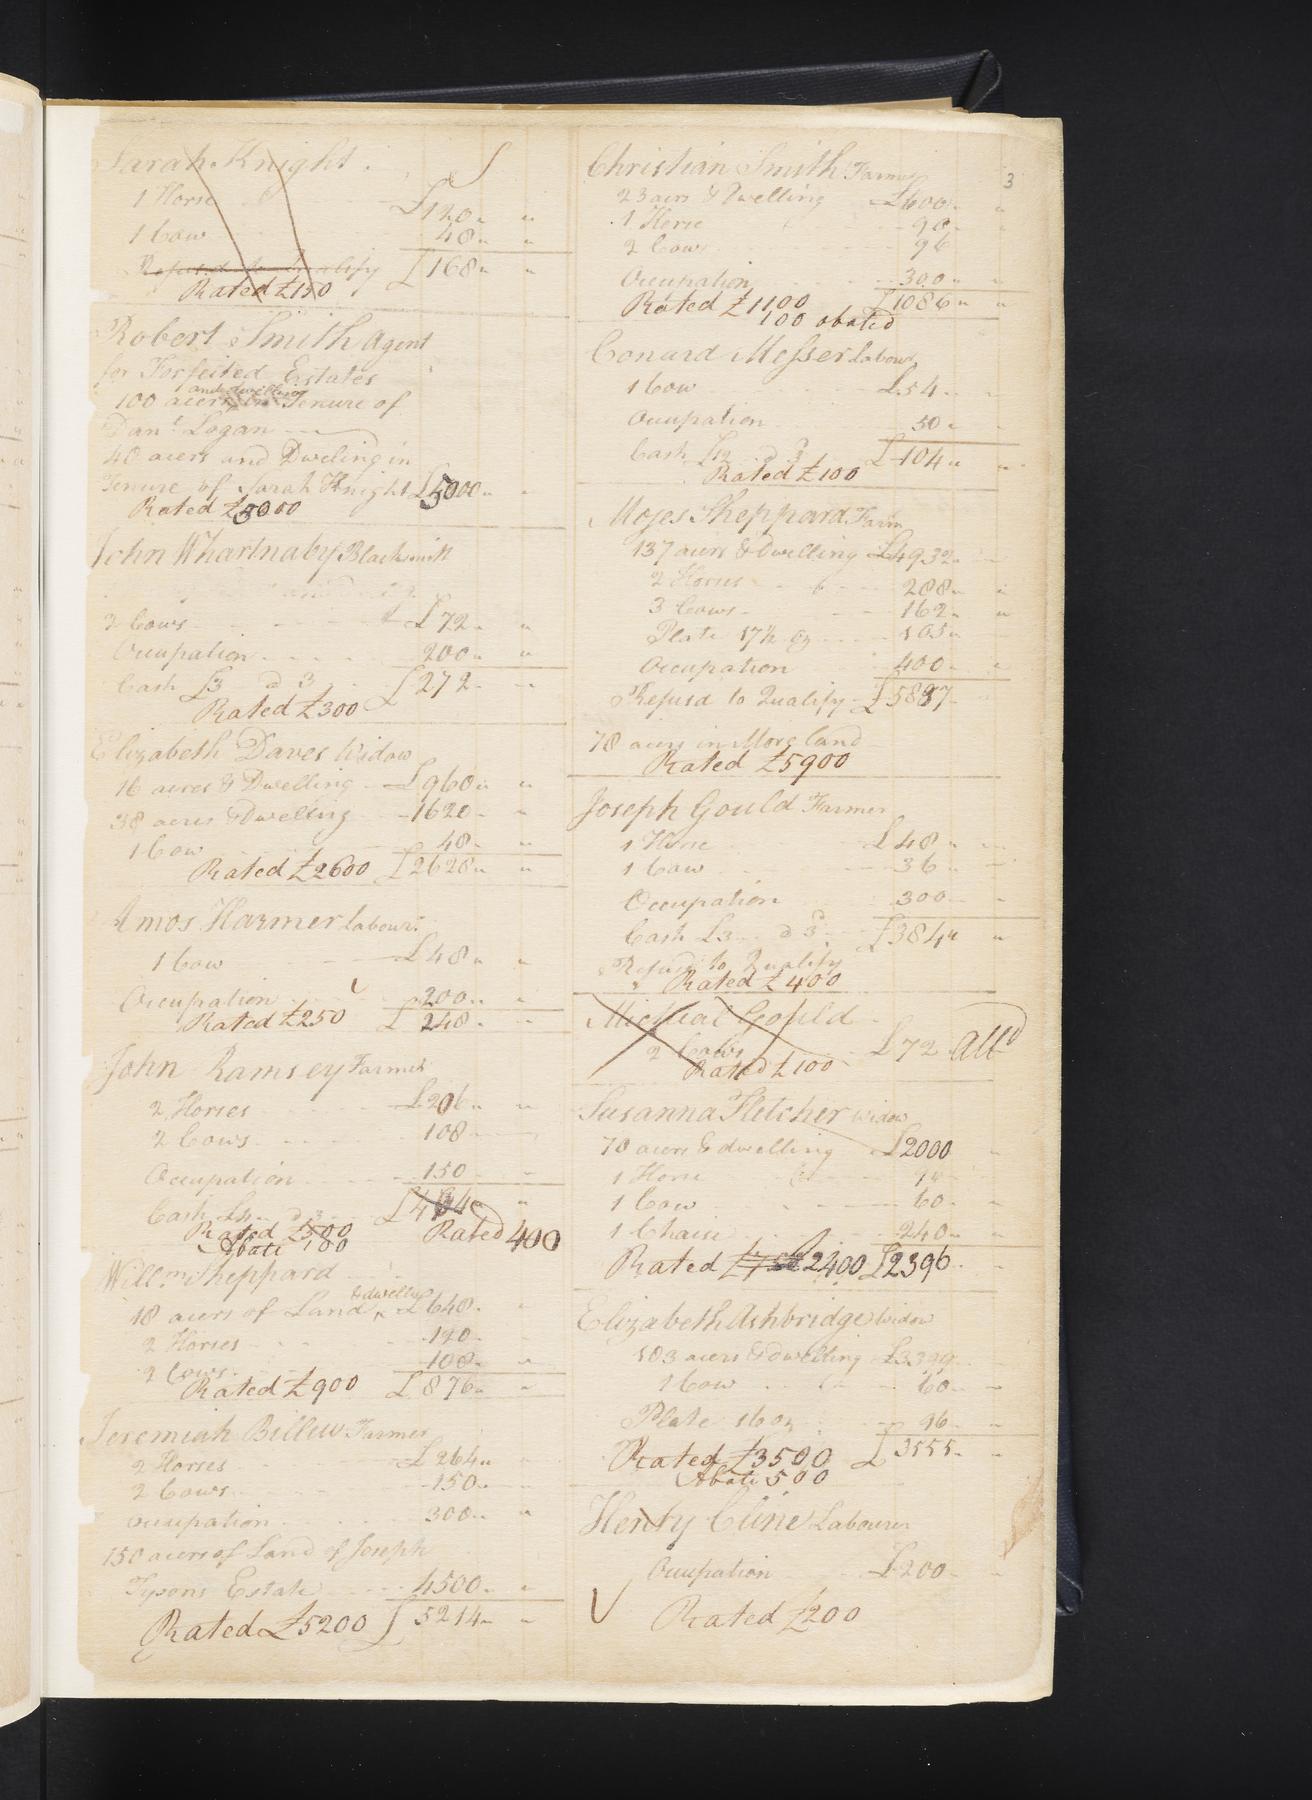 Sarah Knight
1 Horse £120
1 Cow 48
Refused to Qualify £168
Rated £150
Robert Smith Agent
for Forfeited Estates
and dwelling
100 acers in Tenure of
Dan.l Logan
40 acers and Dweling in
Tenure of Sarah Knight £5000
Rated £5000
John Whartnaby Blacksmith
2 Cows £72
Occupation 200
Cash £3 @ 3 £272
Rated £300
Elizabeth Daves Widow
16 acres & Dwelling £960
38 acers & Dwelling 1620
1 Cow 48
Rated £2600 £2628
Amos Harmer Labour.
1 Cow £48
Occupation 200
Rated £250 £248
John Ramsey Farmer
2 Horses £206
2 Cows 108
Occupation 150
Cash £4 @ 3 £464
Rated £500 Rated 400
Abate 100
Will.m Sheppard
& dwellg
18 acers of Land ^ £648
2 Horses 120
2 Cows 108
Rated £900 £876
Jeremiah Billew Farmer
2 Horses £264
2 Cows 150
Occupation 300
150 acers of Land of Joseph
Tysons Estate 4500
Rated £5200 £5214
3
Christian Smith Farmer
23 acers & Dwelling £600
1 Horse 90
2 Cows 96
Occupation 300
Rated £1100 £1086
100 abated
Conard Messer Labour
1 Cow £54
Occupation 50
Cash £12 @ 3 £104
Rated £100
Moses Sheppard Farm
137 acers & Dwelling £4932
2 Horses 288
3 Cows 162
Plate 17½ oz 105
Occupation 400
Refusd to Qualify £5887
78 acers in Moreland
Rated £5900
Joseph Gould Farmer
1 Horse £48
1 Cow 36
Occupation 300
Cash £3 @ 3 £384
Refusd to Qualify
Rated £400
Micheal Gould
2 Cows £72 All.d
Rated £100
Susanna Fletcher widow
70 acers & dwelling £2000
1 Horse
1 Cow 60
1 Chaise 240
Rated 2400 £2396
Elizabeth Ashbridge Widow
103 acers & dwelling £3399
1 Cow 60
Plate 16 oz 96
Rated £3500 £3555
Abate 500
Henry Cline Labourer
Occupation £200
Rated £200